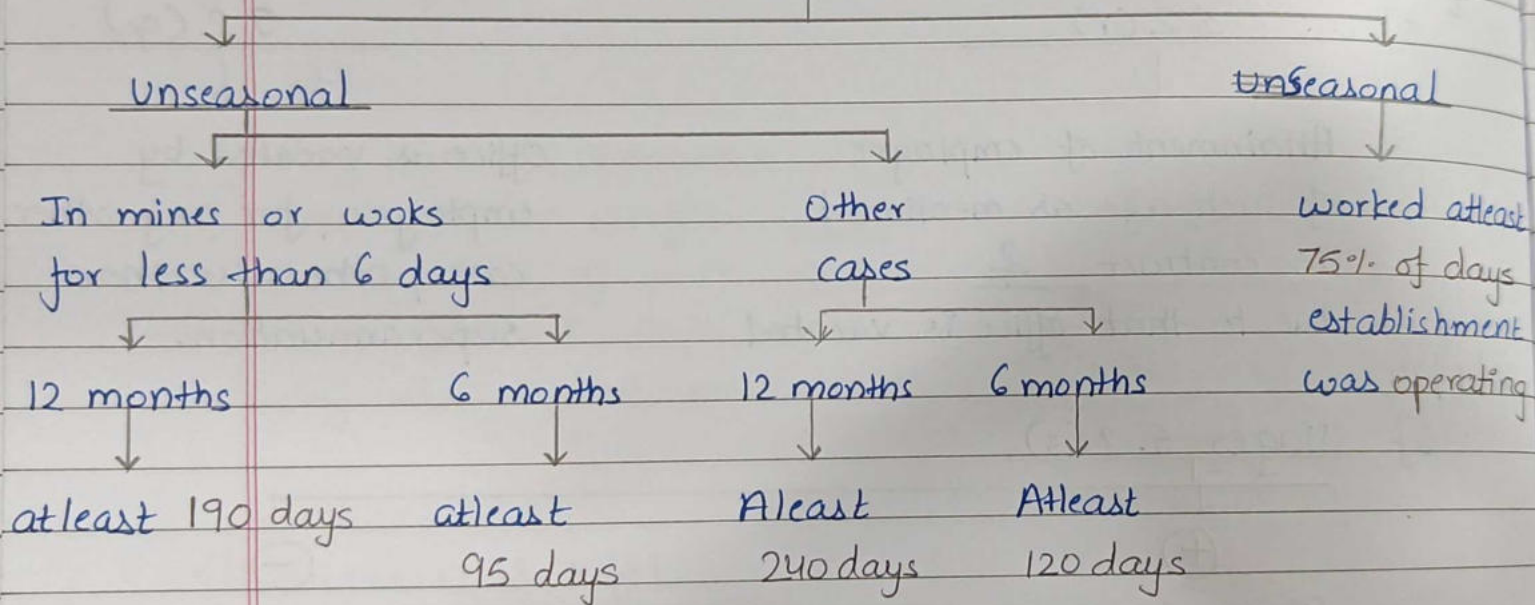 Unseasonal
Seasonal
In mines or woks
for less than 6 days
Other
cases
worked atleast
75% of days
establishment
was operating
12 months
6 months
12 months
6 months
atleast 190 days
atleast
95 days
Aleast
240 days
Atleast
120 days